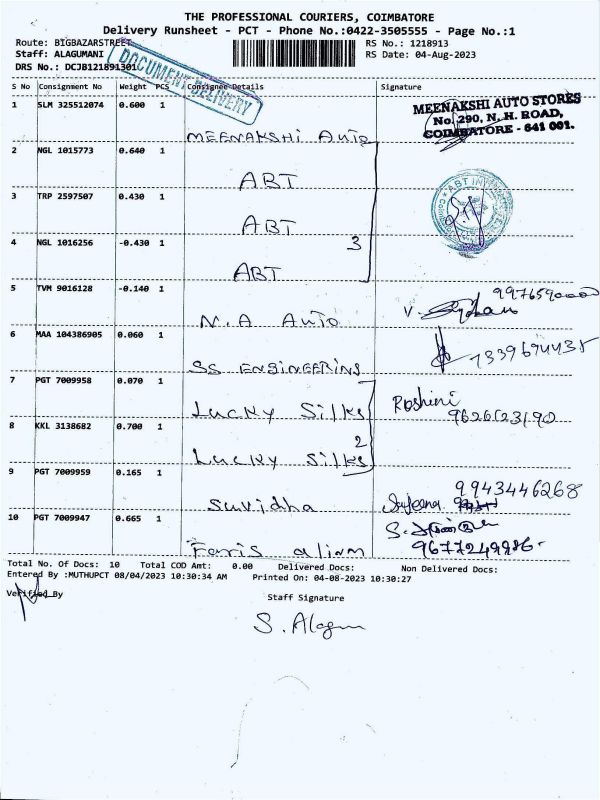 THE PROFESSIONAL COURIERS, COIMBATORE
Delivery Runsheet - PCT - Phone No.:0422-3505555 - Page No.:1
Route: BIGBAZARSTREET
RS No.: 1218913
Staff: ALAGUMANI
RS Date: 04-Aug-2023
DRS No.: DCJB121891301
DOCUMENT DELIVERY
S No Consignment No Weight PCS Consignee Details Signature
1 SLM 325512074 0.600 1
MEENAKSHI AUTO STORES
No. 290, N. H. ROAD,
COIMBATORE - 641 001.
MEENAKSHI Auto
2 NGL 1015773 0.640 1
ABT
3 TRP 2597507 0.430 1
ABT
4 NGL 1016256 -0.430 1
3
ABT
5 TVM 9016128 -0.140 1
N.A Auto
6 MAA 104386905 0.060 1
SS ENGINEERING
7 PGT 7009958 0.070 1
Lucky Silks
Roshini
8 KKL 3138682 0.700 1
2
Lucky Silks
9 PGT 7009959 0.165 1
9943446268
Suvidha
10 PGT 7009947 0.665 1
Total No. Of Docs: 10 Total COD Amt: 0.00 Delivered Docs: Non Delivered Docs:
Entered By :MUTHUPCT 08/04/2023 10:30:34 AM Printed On: 04-08-2023 10:30:27
Verified By
Staff Signature